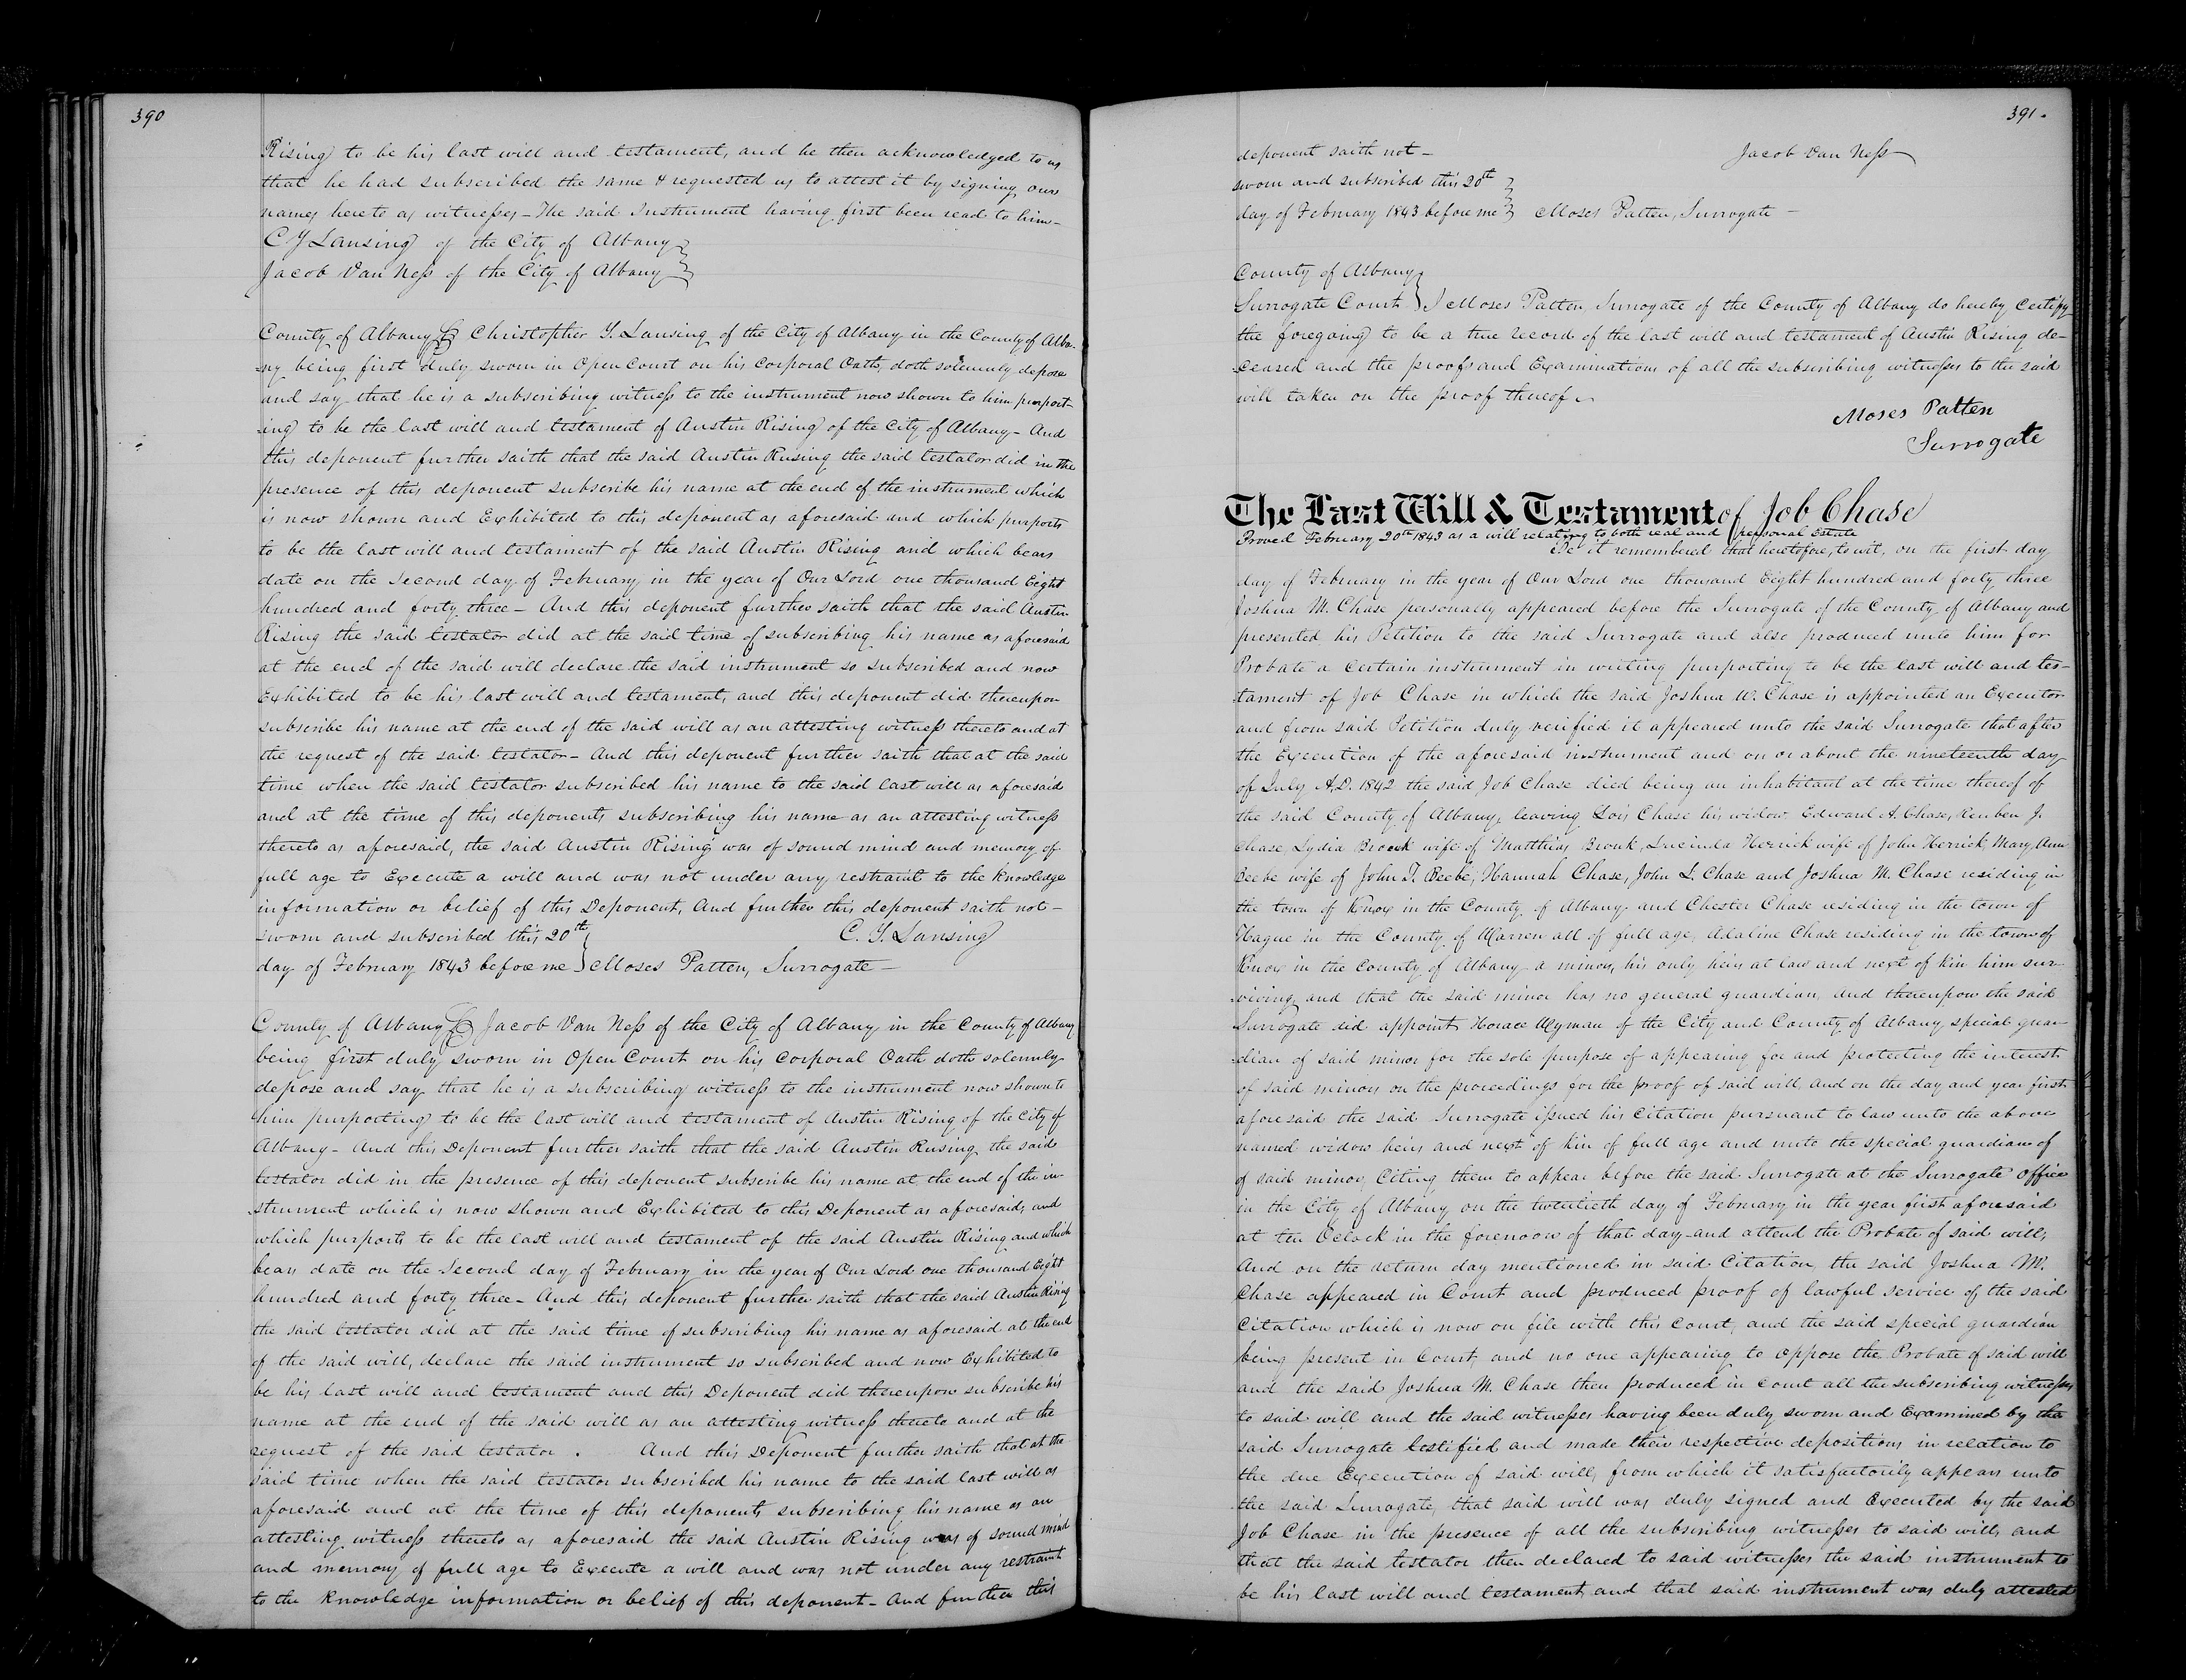 390
Rising to be his last will and testament, and he then acknowledged to us
that he had subscribed the same & requested us to attest it by signing our
names hereto as witnesses - The said Instrument having first been read to him -
C Y Lansing of the City of Albany
Jacob Van Ness of the City of Albany
County of Albany Christopher Y. Lansing of the City of Albany in the County of Alba-
ny being first duly sworn in Open Court on his corporal Oath, doth solemnly depose
and say that he is a subscribing witness to the instrument now shown to him purport-
ing to be the last will and testament of Austin Rising of the City of Albany - And
this deponent further saith that the said Austin Rising the said testator did in the
presence of this deponent subscribe his name at the end of the instrument which
is now shown and Exhibited to this deponent as aforesaid and which purports
to be the last will and testament of the said Austin Rising and which bears
date on the Second day of February in the year of Our Lord one thousand Eight
hundred and forty three - And this deponent further saith that the said Austin
Rising the said testator did at the said time of subscribing his name as aforesaid
at the end of the said will declare the said instrument so subscribed and now
Exhibited to be his last will and testament, and this deponent did thereupon
subscribe his name at the end of the said will as an attesting witness thereto and at
the request of the said testator - And this deponent further saith that at the said
time when the said testator subscribed his name to the said last will as aforesaid
and at the time of this deponents subscribing his name as an attesting witness
thereto as aforesaid, the said Austin Rising was of sound mind and memory of
full age to Execute a will and was not under any restraint to the knowledge
information or belief of this Deponent, And further this deponent saith not -
sworn and subscribed this 20th C. Y. Lansing
day of February 1843 before me Moses Patten, Surrogate -
County of Albany Jacob Van Ness of the City of Albany in the County of Albany
being first duly sworn in Open Court on his corporal Oath doth solemnly
depose and say that he is a subscribing witness to the instrument now shown to
him purporting to be the last will and testament of Austin Rising of the City of
Albany - And this Deponent further saith that the said Austin Rising the said
testator did in the presence of this deponent subscribe his name at the end of the in-
strument which is now shown and Exhibited to this Deponent as aforesaid, and
which purports to be the last will and testament of the said Austin Rising and which
bears date on the Second day of February in the year of Our Lord one thousand Eight
hundred and forty three - And this deponent further saith that the said Austin Rising
the said testator did at the said time of subscribing his name as aforesaid at the end
of the said will, declare the said instrument so subscribed and now Exhibited to
be his last will and testament and this Deponent did thereupon subscribe his
name at the end of the said will as an attesting witness thereto and at the
request of the said testator . And this Deponent further saith that at the
said time when the said testator subscribed his name to the said last will as
aforesaid and at the time of this deponents subscribing his name as an
attesting witness thereto as aforesaid the said Austin Rising was of sound mind
and memory of full age to Execute a will and was not under any restraint
to the knowledge information or belief of this deponent - And further this
391.
deponent saith not - Jacob Van Ness
sworn and subscribed this 20th
day of February 1843 before me Moses Patten, Surrogate -
County of Albany
Surrogate Court I Moses Patten, Surrogate of the County of Albany do hereby Certify
the foregoing to be a true record of the last will and testament of Austin Rising de-
ceased and the proofs and Examinations of all the subscribing witnesses to the said
will taken on the proof thereof -
Moses Patten
Surrogate
The Last Will & Testament of Job Chase
Proved February 20th 1843 as a will relating to both real and personal Estate
Be it remembered that heretofore, to wit, on the first day
day of February in the year of Our Lord one thousand Eight hundred and forty three
Joshua M. Chase personally appeared before the Surrogate of the County of Albany and
presented his Petition to the said Surrogate and also produced unto him for
Probate a certain instrument in writing purporting to be the last will and tes-
tament of Job Chase in which the said Joshua W. Chase is appointed an Executor
and from said Petition duly verified it appeared unto the said Surrogate that after
the Execution of the aforesaid instrument and on or about the nineteenth day
of July A.D. 1842 the said Job Chase died being an inhabitant at the time thereof of
the said County of Albany, leaving Lois Chase his widow, Edward A. Chase, Reuben J.
Chase, Lydia Bronk wife of Matthias Bronk, Lucinda Herrick wife of John Herrick, Mary Ann
Beebe wife of John T. Beebe, Hannah Chase, John L. Chase and Joshua M. Chase residing in
the town of Knox in the County of Albany and Chester Chase residing in the town of
Hague in the County of Warren all of full age, Adaline Chase residing in the town of
Knox in the County of Albany a minor, his only heirs at law and next of kin him sur-
viving and that the said minor has no general guardian, and thereupon the said
Surrogate did appoint Horace Wyman of the City and County of Albany special guar-
dian of said minor for the sole purpose of appearing for and protecting the interest
of said minor on the proceedings for the proof of said will, and on the day and year first
aforesaid the said Surrogate issued his Citation pursuant to law unto the above
named widow heirs and next of kin of full age and unto the special guardian of
of said minor, Citing them to appear before the said Surrogate at the Surrogate office
in the City of Albany on the twentieth day of February in the year first aforesaid
at ten Oclock in the forenoon of that day and attend the Probate of said will,
And on the return day mentioned in said Citation, the said Joshua M.
Chase appeared in Court and produced proof of lawful service of the said
Citation which is now on file with this Court, and the said special guardian
being present in Court, and no one appearing to oppose the Probate of said will
and the said Joshua M. Chase then produced in Court all the subscribing witnesses
to said will and the said witnesses having been duly sworn and Examined by the
said Surrogate testified and made their respective depositions in relation to
the due Execution of said will, from which it satisfactorily appears unto
the said Surrogate, that said will was duly signed and Executed by the said
Job Chase in the presence of all the subscribing witnesses to said will, and
that the said testator then declared to said witnesses the said instrument to
be his last will and testament and that said instrument was duly attested